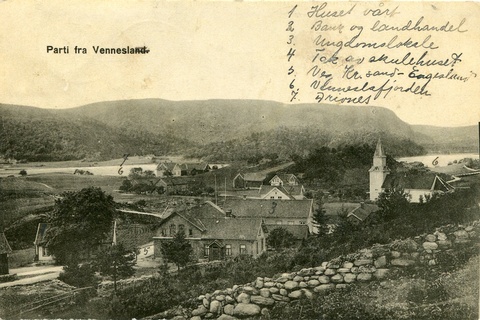 Parti fra Vennesland.
1 Huset vårt
2 Bank og landhandel
3 Ungdomslokale
4 Tak av skulehuset
5 Veg Kr.sand -
6 Vennslafjorden
7
6
6